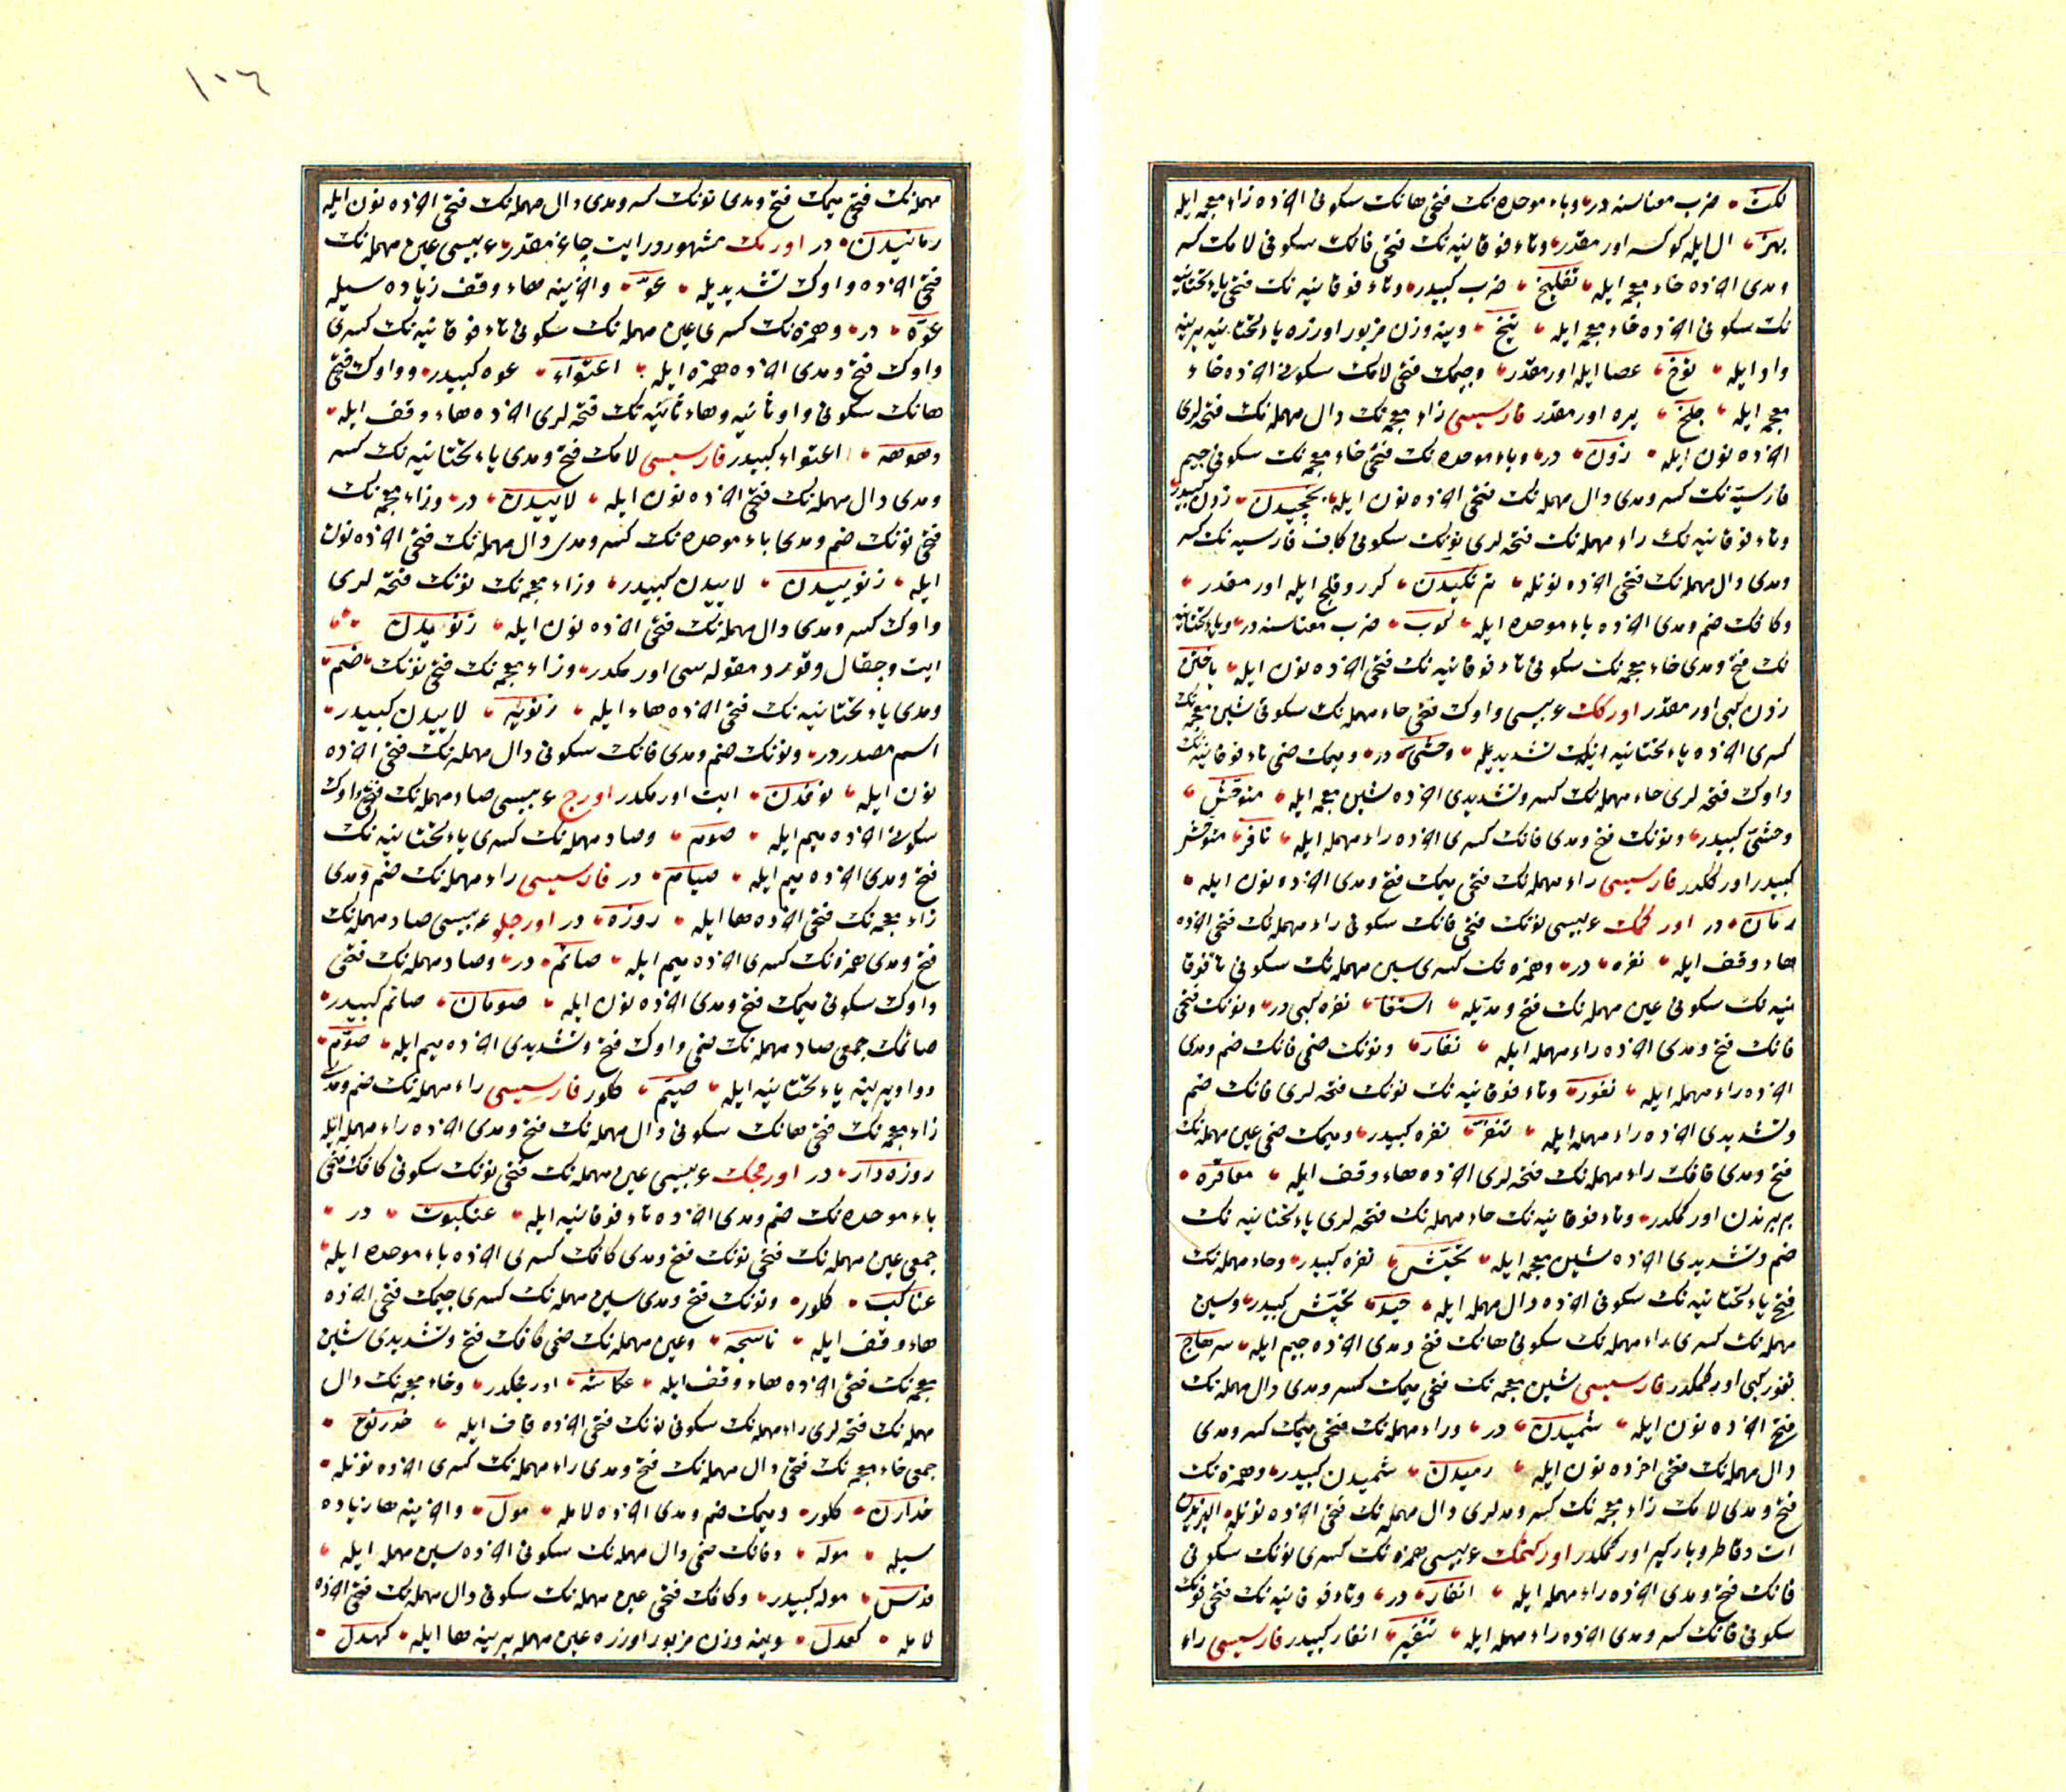 لکت ضرب معناسنه در وباء موحده نک فتحی هانک سکونی اخرنده زاء معجمه ایله
بهز ال ایله کوکسه اورمقدر وتاء فوقانیه نک فتحی فانک سکونی لامک کسر
ومدی اخرنده خاء معجمه ایله تفلیخ ضرب کبیدر وتاء فوقانیه نک فتحی یاء تحتانیه
نک سکونی اخرنده خاء معجمه ایله تیخ وینه وزن مزبور اوزره یاء تحتانیه یرینه
واو ایله توخ عصا ایله اورمقدر وجیمک فتحی لامک سکونی اخرنده خاء
معجمه ایله جلخ یره اورمقدر فارسیسی زاء معجمه نک دال مهمله نک فتحه لری
اخرنده نون ایله زدن در وباء موحده نک فتحی خاء معجمه نک سکونی جیم
فارسیه نک کسر ومدی دال مهمله نک فتحی اخرنده نون ایله بخچیدن زدن کبیدر
وتاء فوقانیه نک راء مهمله نک فتحه لری نونک سکونی کاف فارسیه نک کسر
ومدی دال مهمله نک فتحی اخرنده نونله ترنکیدن کرر وقلج ایله اورمقدر
وکافک ضم ومدی اخرنده باء موحده ایله کوب ضرب معناسنه در ویاء تحتانیه
نک فتح ومدی خاء معجمه نک سکونی تاء فوقانیه نک فتحی اخرنده نون ایله یاختن
زدن کبی اورمقدر اورکک عربیسی واوک فتحی حاء مهمله نک سکونی شین معجمه نک
کسری اخرنده یاء تحتانیه نک تشدیدیله وحشی در ومیمک ضمی تاء فوقانیه نک
واوک فتحه لری حاء مهمله نک کسر وتشدیدی اخرنده شین معجمه ایله متوحش
وحشی کبیدر ونونک فتح ومدی فانک کسری اخرنده راء مهمله ایله نافر متوحش
کبیدر اورکمکدر فارسیسی راء مهمله نک فتحی میمک فتح ومدی اخرنده نون ایله
رمان در اورکمک عربیسی نونک فتحی فانک سکونی راء مهمله نک فتحی اخرنده
هاء وقف ایله نفره در وهمزه نک کسری سین مهمله نک سکونی تاء فوقا
نیه نک سکونی عین مهمله نک فتح ومدیله نفره کبی در ونونک فتحی
فانک فتح ومدی اخرنده راء مهمله ایله نفار ونونک ضمی فانک ضم ومدی
اخرنده راء مهمله ایله نفور وتاء فوقانیه نک نونک فتحه لری فانک ضم
وتشدیدی اخرنده راء مهمله ایله تنفر نفره کبیدر ومیمک ضمی عین مهمله نک
فتح ومدی قافک راء مهمله نک فتحه لری اخرنده هاء وقف ایله معاقره
بربرندن اورکمکدر وتاء فوقانیه نک حاء مهمله نک فتحه لری یاء تحتانیه نک
ضم وتشدیدی اخرنده شین معجمه ایله تحیش نفره کبیدر وحاء مهمله نک
فتحی یاء تحتانیه نک سکونی اخرنده دال مهمله ایله حید تحیش کبیدر وسین
مهمله نک کسری راء مهمله نک سکونی هانک فتح ومدی اخرنده جیم ایله سرهاج
نفور کبی اورکمکدر فارسیسی شین معجمه نک فتحی میمک کسر ومدی دال مهمله نک
فتحی اخرنده نون ایله شمیدن در وراء مهمله نک فتحی میمک کسر ومدی
دال مهمله نک فتحی اخرنده نون ایله رمیدن شمیدن کبیدر وهمزه نک
فتح ومدی لامک زاء معجمه نک کسر ومدلری دال مهمله نک فتحی اخرنده نونله الیزیدن
ات وقاطر وبارکیر اورکمکدر اورکتمک عربیسی همزه نک کسری نونک سکونی
فانک فتح ومدی اخرنده راء مهمله ایله انفار در وتاء فوقانیه نک فتحی نونک
سکونی فانک کسر ومدی اخرنده راء مهمله ایله تنفیر انفار کبیدر فارسیسی راء
١٠٦
مهمله نک فتحی میمک فتح ومدی نونک کسر ومدی دال مهمله نک فتحی اخرنده نون ایله
رمانیدن در اورمک مشهوردر ایت چاغرمقدر عربیسی عین مهمله نک
فتحی اخرنده واوک تشدیدیله عو واخرینه هاء وقف زیاده سیله
عوه در وهمزه نک کسری عین مهمله نک سکونی تاء فوقانیه نک کسری
واوک فتح ومدی اخرنده همزه ایله اعتواء عوه کبیدر وواوک فتحی
هانک سکونی واو ثانیه وهاء ثانیه نک فتحه لری اخرنده هاء وقف ایله
وهوهه اعتواء کبیدر فارسیسی لامک فتح ومدی یاء تحتانیه نک کسر
ومدی دال مهمله نک فتحی اخرنده نون ایله لاییدن در وزاء معجمه نک
فتحی نونک ضم ومدی یاء موحده نک کسر ومدی دال مهمله نک فتحی اخرنده نون
ایله زنوییدن لاییدن کبیدر وزاء معجمه نک نونک فتحه لری
واوک کسر ومدی دال مهمله نک فتحی اخرنده نون ایله زنویدن
ایت وچقال وقورد مقوله سی اورمکدر وزاء معجمه نک فتحی نونک ضم
ومدی یاء تحتانیه نک فتحی اخرنده هاء ایله زنویه لاییدن کبیدر
اسم مصدردر ونونک ضم ومدی فانک سکونی دال مهمله نک فتحی اخرنده
نون ایله نوفدن ایت اورمکدر اورج عربیسی صاد مهمله نک فتحی واوک
سکونی اخرنده میم ایله صوم وصاد مهمله نک کسری یاء تحتانیه نک
فتح ومدی اخرنده میم ایله صیام در فارسیسی راء مهمله نک ضم ومدی
زاء معجمه نک فتحی اخرنده ها ایله روزه در اورجلو عربیسی صاد مهمله نک
فتح ومدی همزه نک کسری اخرنده میم ایله صائم در وصاد مهمله نک فتحی
واوک سکونی میمک فتح ومدی اخرنده نون ایله صومان صائم کبیدر
صائمک جمعی صاد مهمله نک ضمی واوک فتح وتشدیدی اخرنده میم ایله صوم
وواو یرینه یاء تحتانیه ایله صیم کلور فارسیسی راء مهمله نک ضم ومدی
زاء معجمه نک فتحی هانک سکونی دال مهمله نک فتح ومدی اخرنده راء مهمله ایله
روزه دار در اورمجک عربیسی عین مهمله نک فتحی نونک سکونی کافک فتحی
باء موحده نک ضم ومدی اخرنده تاء فوقانیه ایله عنکبوت در
جمعی عین مهمله نک فتحی نونک فتح ومدی کافک کسری اخرنده باء موحده ایله
عناکب کلور ونونک فتح ومدی سین مهمله نک کسری جیمک فتحی اخرنده
هاء وقف ایله ناسجه وعین مهمله نک ضمی کافک فتح وتشدیدی شین
معجمه نک فتحی اخرنده هاء وقف ایله عکاشه اورمجکدر وخاء معجمه نک دال
مهمله نک فتحه لری راء مهمله نک سکونی نونک فتحی اخرنده قاف ایله خدرنق
جمعی خاء معجمه نک فتحی دال مهمله نک فتح ومدی راء مهمله نک کسری اخرنده نونله
خدارن کلور ومیمک ضم ومدی اخرنده لامله مول واخرینه ها زیاده
سیله موله وفانک ضمی دال مهمله نک سکونی اخرنده سین مهمله ایله
فدس موله کبیدر وکافک فتحی عین مهمله نک سکونی دال مهمله نک فتحی اخرنده
لامله کعدل وینه وزن مزبور اوزره عین مهمله یرینه ها ایله کهدل